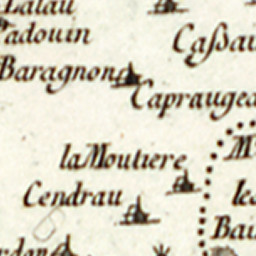 Lalau
Padouin
Cassau
Baragnon
Capraugea
la Moutiere
M
Cendrau
les
Bai
rdon